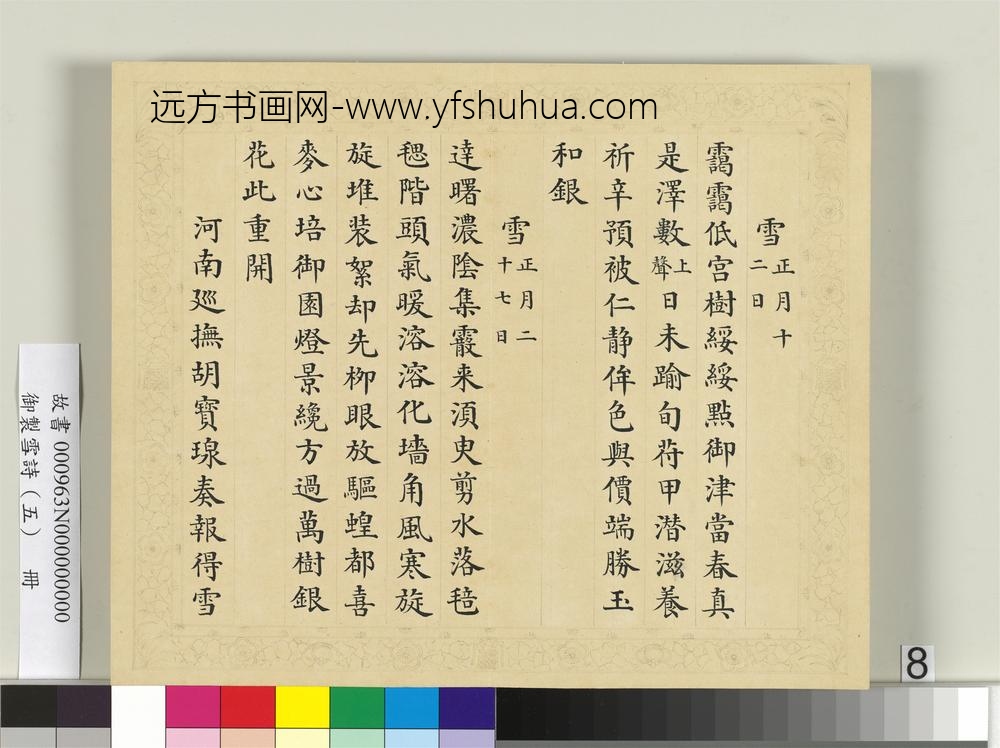 远方书画网-www.yfshuhua.com
雪 正月十二日
靄靄低宮樹綏綏點御津當春真
是澤數上聲日未踰旬荷甲潛滋養
祈辛預被仁静侔色與價端勝玉
和銀
雪 正月二十七日
達曙濃陰集霰来須臾剪水落毰
毸階頭氣暖溶溶化墻角風寒旋
旋堆装絮却先柳眼放驅蝗都喜
麥心培御園燈景纔方過萬樹銀
花此重開
河南廵撫胡寶瑔奏報得雪
故書 000963N000000000
御製雪詩（五） 冊
8